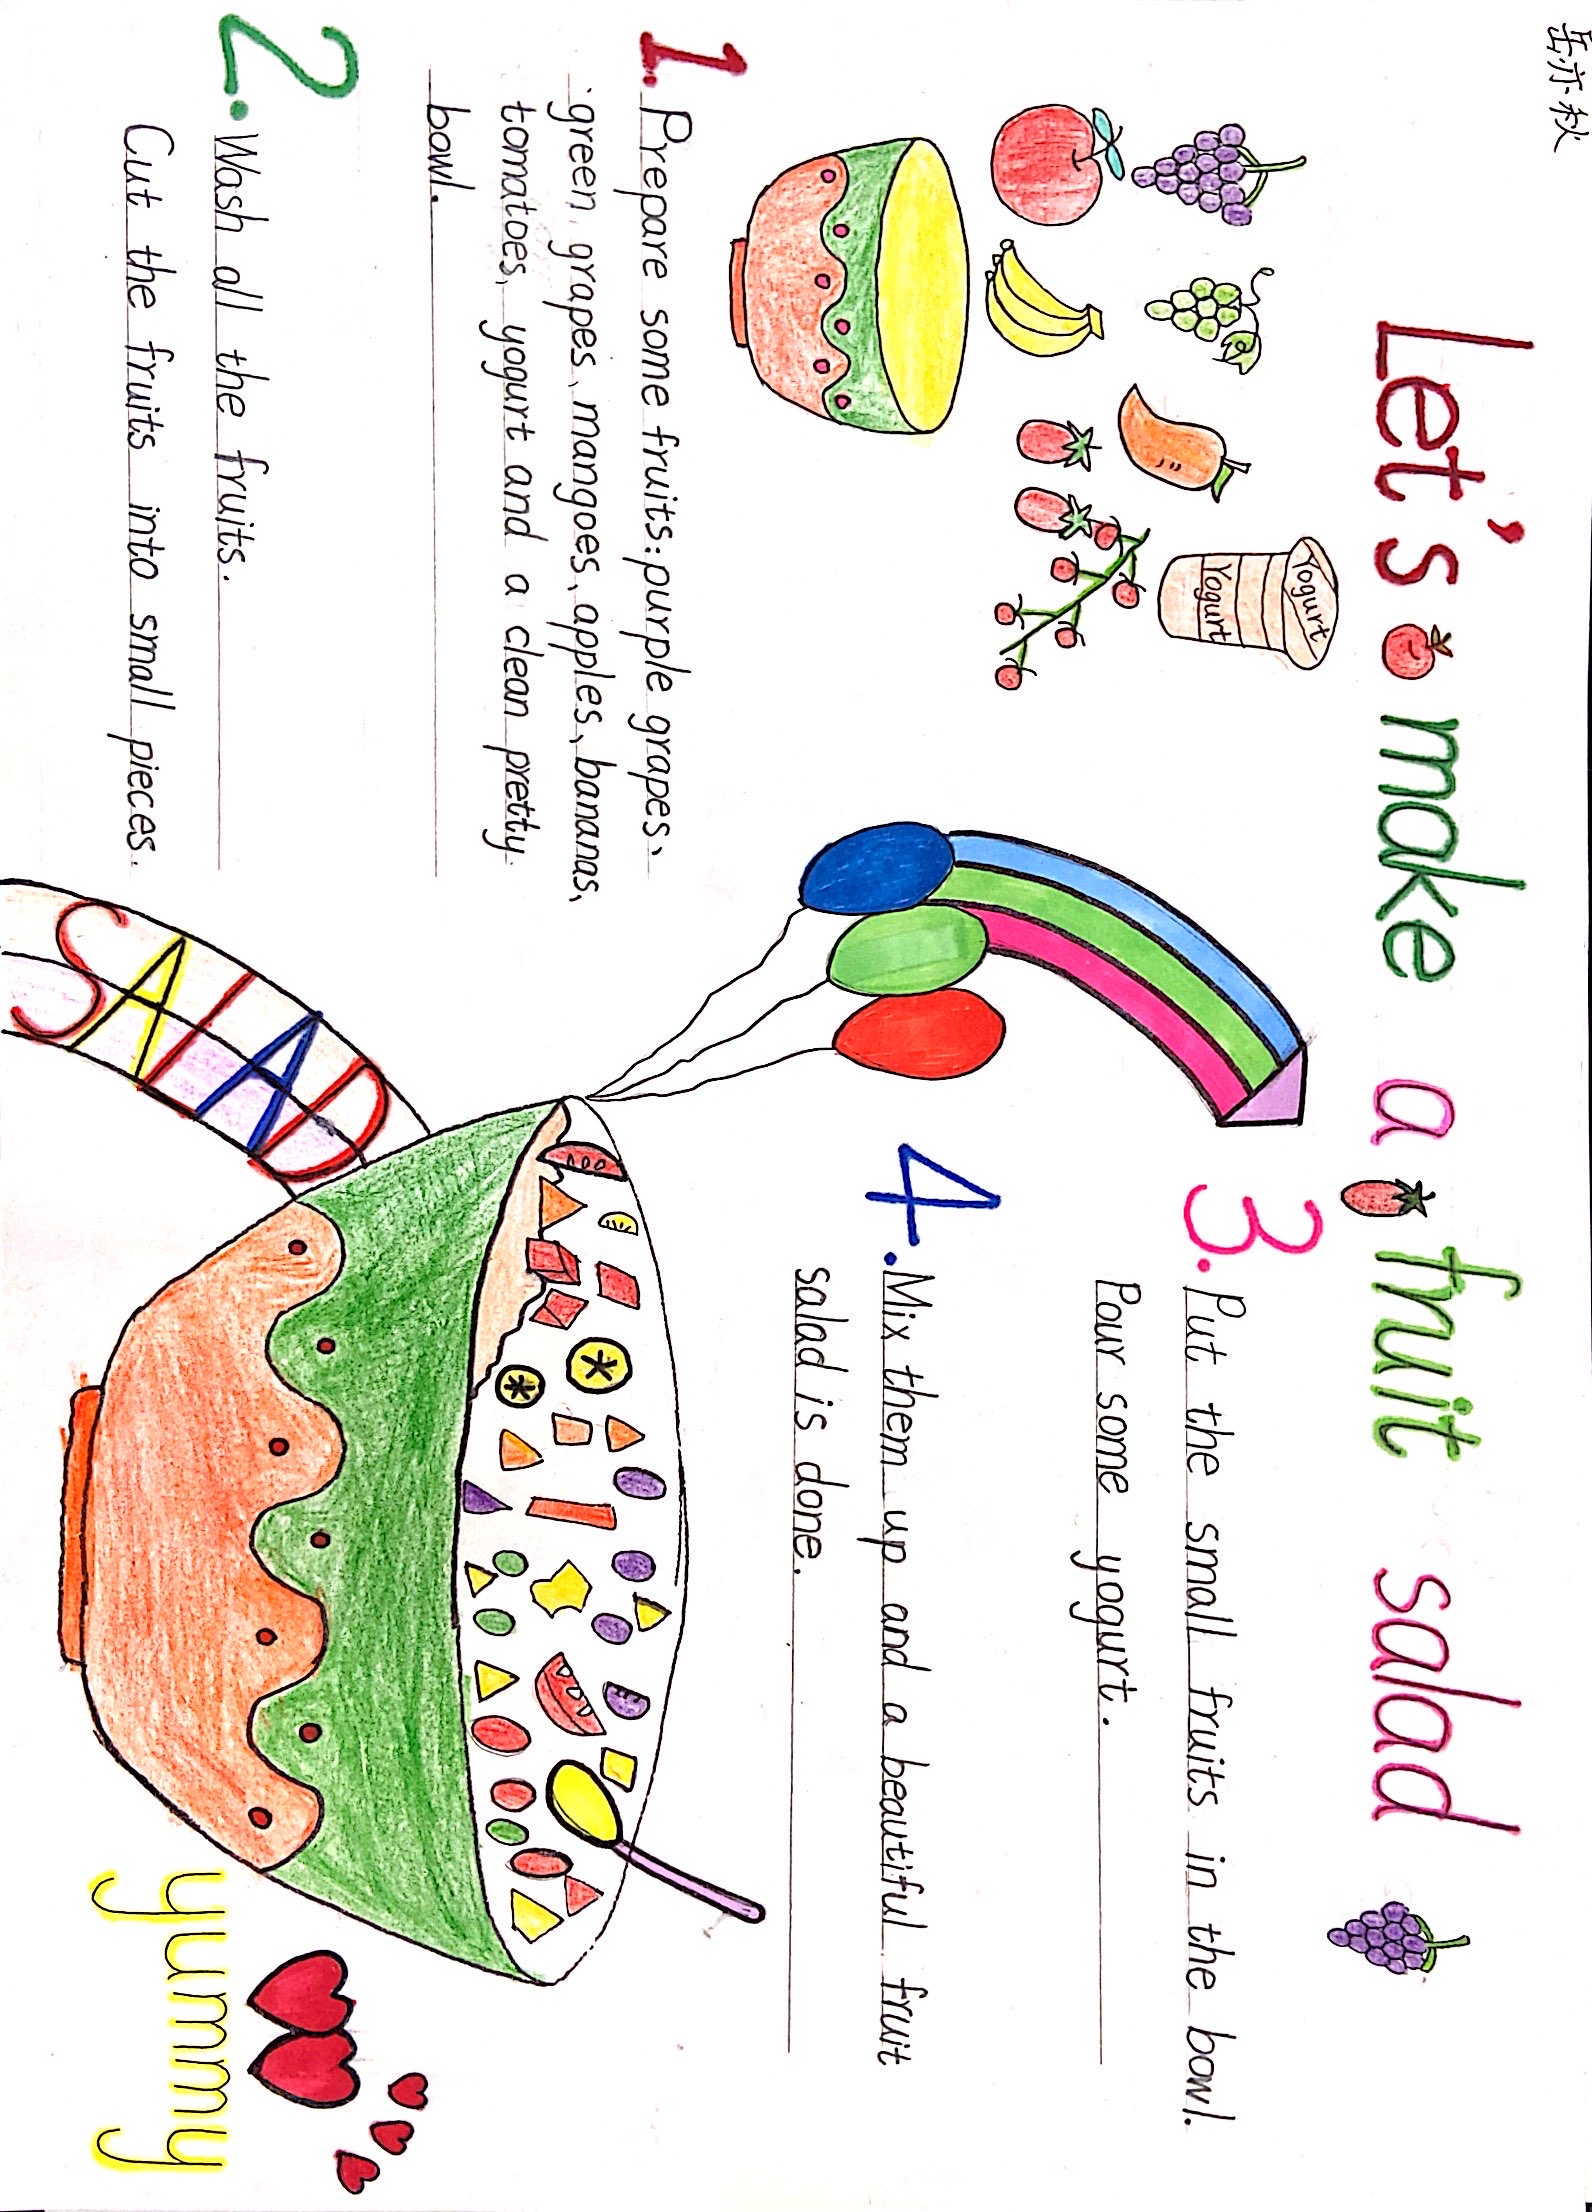 岳亦秋
Let's make a fruit salad
Yogurt
Yogurt
1. Prepare some fruits: purple grapes、
green grapes、mangoes、apples、bananas、
tomatoes、yogurt and a clean pretty
bowl.
2. Wash all the fruits.
Cut the fruits into small pieces.
3. Put the small fruits in the bowl.
Pour some yogurt.
4. Mix them up and a beautiful fruit
salad is done.
SALAD
yummy